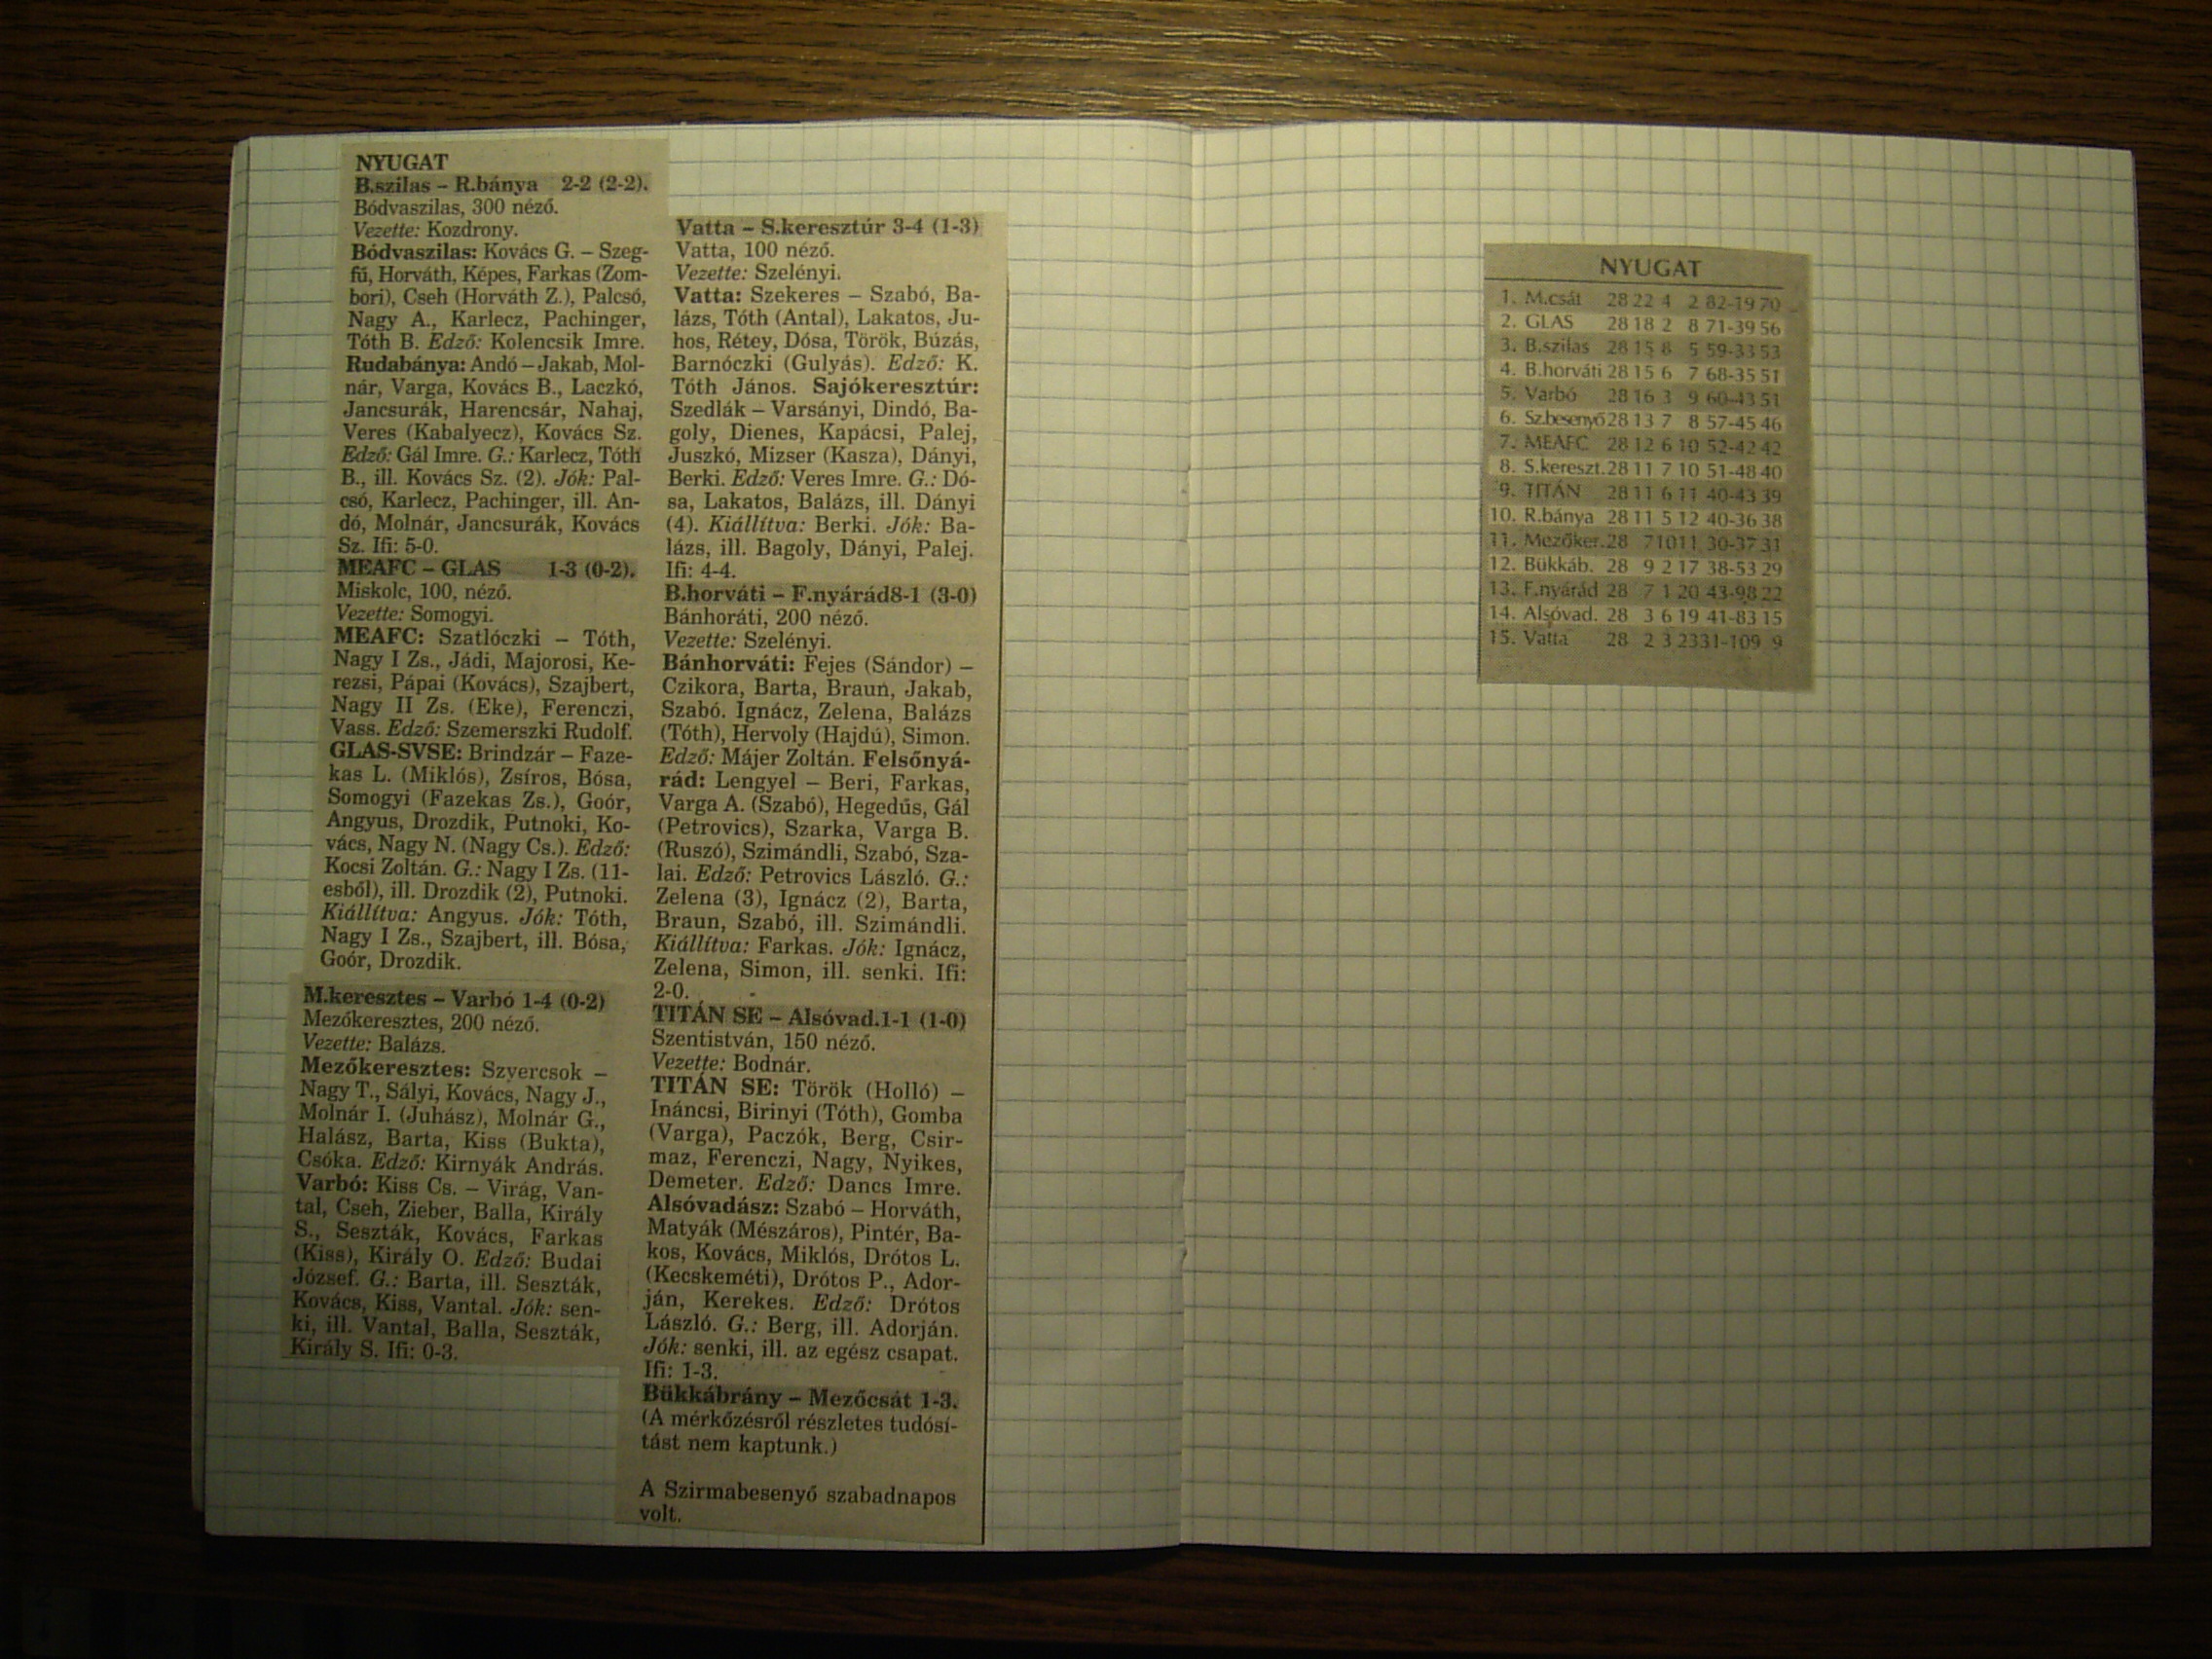 NYUGAT
B.szilas – R.bánya 2-2 (2-2).
Bódvaszilas, 300 néző.
Vezette: Kozdrony.
Bódvaszilas: Kovács G. – Szeg-
fű, Horváth, Képes, Farkas (Zom-
bori), Cseh (Horváth Z.), Palcsó,
Nagy A., Karlecz, Pachinger,
Tóth B. Edző: Kolencsik Imre.
Rudabánya: Andó – Jakab, Mol-
nár, Varga, Kovács B., Laczkó,
Jancsurák, Harencsár, Nahaj,
Veres (Kabalyecz), Kovács Sz.
Edző: Gál Imre. G.: Karlecz, Tóth
B., ill. Kovács Sz. (2). Jók: Pal-
csó, Karlecz, Pachinger, ill. An-
dó, Molnár, Jancsurák, Kovács
Sz. Ifi: 5-0.
MEAFC – GLAS 1-3 (0-2).
Miskolc, 100, néző.
Vezette: Somogyi.
MEAFC: Szatlóczki – Tóth,
Nagy I Zs., Jádi, Majorosi, Ke-
rezsi, Pápai (Kovács), Szajbert,
Nagy II Zs. (Eke), Ferenczi,
Vass. Edző: Szemerszki Rudolf.
GLAS-SVSE: Brindzár – Faze-
kas L. (Miklós), Zsíros, Bósa,
Somogyi (Fazekas Zs.), Goór,
Angyus, Drozdik, Putnoki, Ko-
vács, Nagy N. (Nagy Cs.). Edző:
Kocsi Zoltán. G.: Nagy I Zs. (11-
esből), ill. Drozdik (2), Putnoki.
Kiállítva: Angyus. Jók: Tóth,
Nagy I Zs., Szajbert, ill. Bósa,
Goór, Drozdik.
M.keresztes – Varbó 1-4 (0-2)
Mezőkeresztes, 200 néző.
Vezette: Balázs.
Mezőkeresztes: Szvercsok –
Nagy T., Sályi, Kovács, Nagy J.,
Molnár I. (Juhász), Molnár G.,
Halász, Barta, Kiss (Bukta),
Csóka. Edző: Kirnyák András.
Varbó: Kiss Cs. – Virág, Van-
tal, Cseh, Zieber, Balla, Király
S., Seszták, Kovács, Farkas
(Kiss), Király O. Edző: Budai
József. G.: Barta, ill. Seszták,
Kovács, Kiss, Vantal. Jók: sen-
ki, ill. Vantal, Balla, Seszták,
Király S. Ifi: 0-3.
Vatta – S.keresztúr 3-4 (1-3)
Vatta, 100 néző.
Vezette: Szelényi.
Vatta: Szekeres – Szabó, Ba-
lázs, Tóth (Antal), Lakatos, Ju-
hos, Rétey, Dósa, Török, Búzás,
Barnóczki (Gulyás). Edző: K.
Tóth János. Sajókeresztúr:
Szedlák – Varsányi, Dindó, Ba-
goly, Dienes, Kapácsi, Palej,
Juszkó, Mizser (Kasza), Dányi,
Berki. Edző: Veres Imre. G.: Dó-
sa, Lakatos, Balázs, ill. Dányi
(4). Kiállítva: Berki. Jók: Ba-
lázs, ill. Bagoly, Dányi, Palej.
Ifi: 4-4.
B.horváti – F.nyárád8-1 (3-0)
Bánhoráti, 200 néző.
Vezette: Szelényi.
Bánhorváti: Fejes (Sándor) –
Czikora, Barta, Braun, Jakab,
Szabó. Ignácz, Zelena, Balázs
(Tóth), Hervoly (Hajdú), Simon.
Edző: Májer Zoltán. Felsőnyá-
rád: Lengyel – Beri, Farkas,
Varga A. (Szabó), Hegedűs, Gál
(Petrovics), Szarka, Varga B.
(Ruszó), Szimándli, Szabó, Sza-
lai. Edző: Petrovics László. G.:
Zelena (3), Ignácz (2), Barta,
Braun, Szabó, ill. Szimándli.
Kiállítva: Farkas. Jók: Ignácz,
Zelena, Simon, ill. senki. Ifi:
2-0.
TITÁN SE – Alsóvad.1-1 (1-0)
Szentistván, 150 néző.
Vezette: Bodnár.
TITÁN SE: Török (Holló) –
Ináncsi, Birinyi (Tóth), Gomba
(Varga), Paczók, Berg, Csir-
maz, Ferenczi, Nagy, Nyikes,
Demeter. Edző: Dancs Imre.
Alsóvadász: Szabó – Horváth,
Matyák (Mészáros), Pintér, Ba-
kos, Kovács, Miklós, Drótos L.
(Kecskeméti), Drótos P., Ador-
ján, Kerekes. Edző: Drótos
László. G.: Berg, ill. Adorján.
Jók: senki, ill. az egész csapat.
Ifi: 1-3.
Bükkábrány – Mezőcsát 1-3.
(A mérkőzésről részletes tudósí-
tást nem kaptunk.)
A Szirmabesenyő szabadnapos
volt.
NYUGAT
1. M.csát 28 22 4 2 82-19 70
2. GLAS 28 18 2 8 71-39 56
3. B.szilas 28 15 8 5 59-33 53
4. B.horváti 28 15 6 7 68-35 51
5. Varbó 28 16 3 9 60-43 51
6. Sz.besenyő 28 13 7 8 57-45 46
7. MEAFC 28 12 6 10 52-42 42
8. S.kereszt. 28 11 7 10 51-48 40
9. TITÁN 28 11 6 11 40-43 39
10. R.bánya 28 11 5 12 40-36 38
11. Mezőker. 28 7 10 11 30-37 31
12. Bükkáb. 28 9 2 17 38-53 29
13. F.nyárád 28 7 1 20 43-98 22
14. Alsóvad. 28 3 6 19 41-83 15
15. Vatta 28 2 3 23 31-109 9